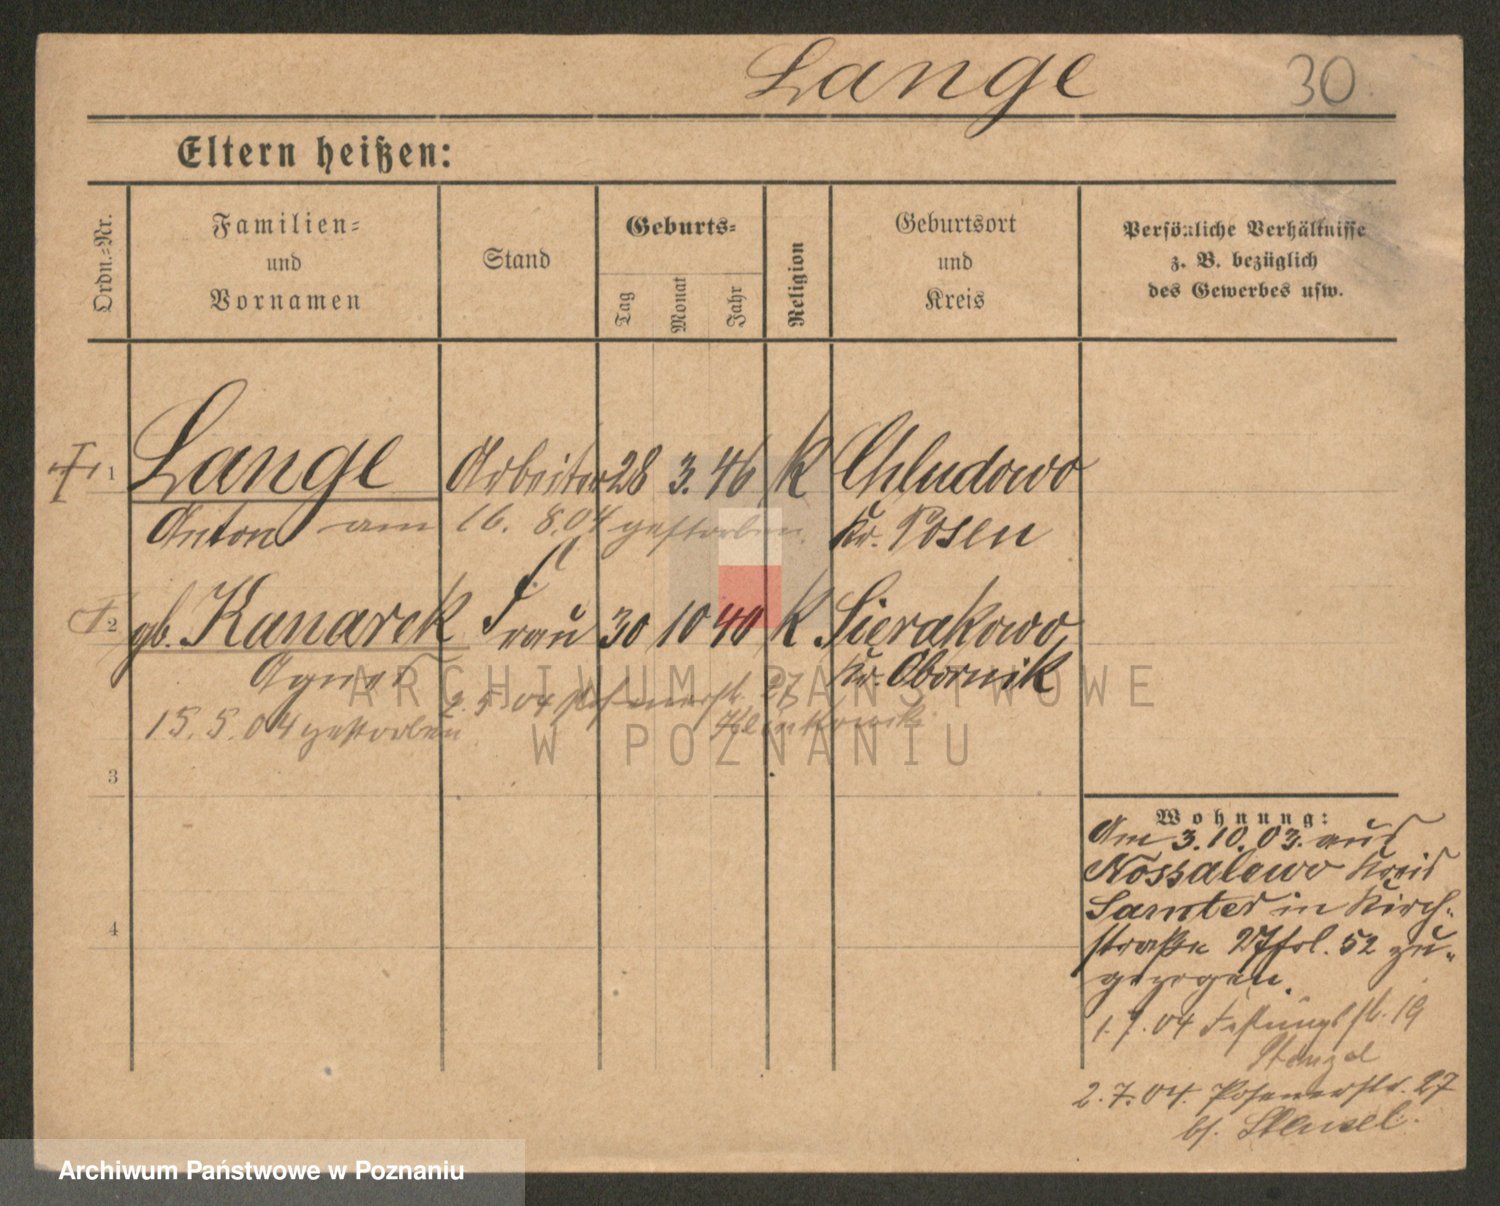 Lange 30
Eltern heißen:
Ordn.-Nr.
Familien-
und
Vornamen
Stand
Geburts-
Tag
Monat
Jahr
Religion
Geburtsort
und
Kreis
Persönliche Verhältnisse
z. B. bezüglich
des Gewerbes usw.
1 Lange Arbeiter 28 3. 46 K Chludowo
Anton am 16. 8.04 gestorben. Kr. Posen
2 gb. Kanarek Frau 30 10 40 K Sierakowo
Agnes Kr. Obornik
2.5.04 Posenerstr. 27
15.5.04 gestorben
3
4
Wohnung:
Am 3.10.03. aus
Nossalewo Kreis
Samter in Kirch-
straße 27 fol. 52 zu-
gezogen.
1.7.04 Festungsstr. 19
Stenzel
2.7.04. Posenerstr. 27
bf. Stenzel.
ARCHIWUM PAŃSTWOWE
W POZNANIU
Archiwum Państwowe w Poznaniu